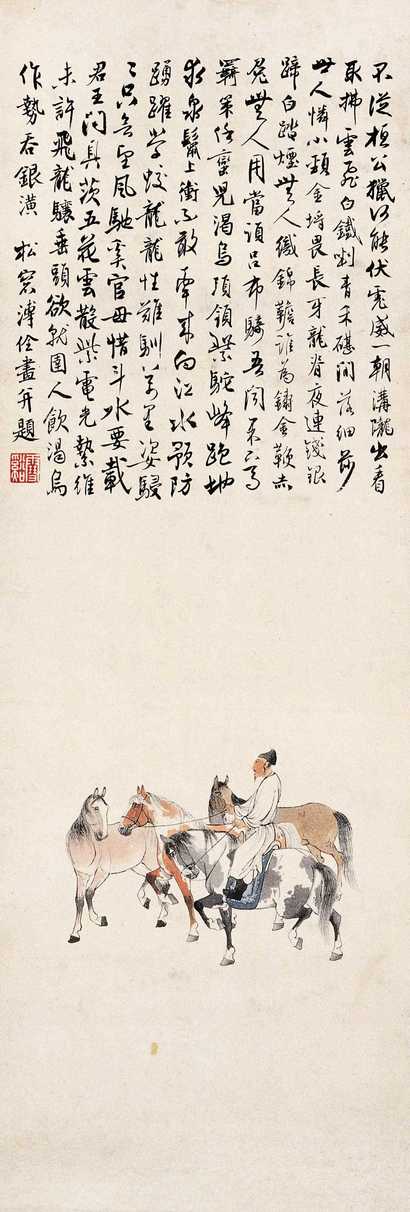 不從桓公獵何能伏虎威一朝溝隴出看
取拂雲飛白鐵剉青禾碪間落細莎
世人憐小頸金埒畏長牙龍脊夜連錢銀
蹄白踏煙無人織錦韂誰為鑄金鞭赤
兔無人用當須呂布騎吾聞果下馬
羈策任蠻兒渴烏項領紫駝峰跑地
求泉鬣上衝不敢牽來向江水預防
踴躍學蛟龍龍性難馴萬里姿駸
〻只是望風馳奚官毋惜斗水要載
君王問具茨五花雲散紫電光縶維
未許飛龍驤垂頭欲就圉人飲渴烏
作勢吞銀潢 松窗溥佺畫并題